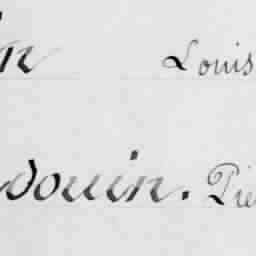 in Louis
douin. Pie